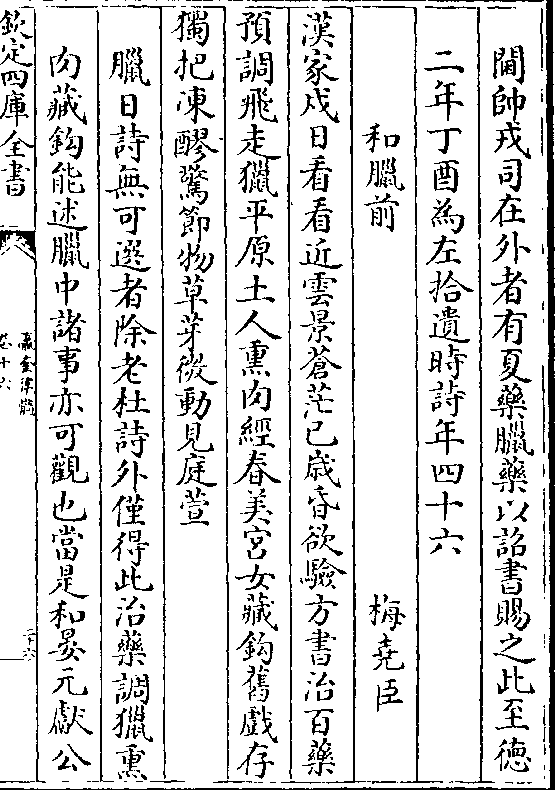 閫帥戎司在外者有夏藥臘藥以詔書賜之此至德
二年丁酉為左拾遺時詩年四十六
和臘前 梅堯臣
漢家戌日看看近雲景蒼茫已歲昏欲驗方書治百藥
預調飛走獵平原土人熏肉經春美宮女藏鈎舊戲存
獨把凍醪驚節物草芽微動見庭萱
臘日詩無可選者除老杜詩外僅得此治藥調獵熏
肉藏鈎能述臘中諸事亦可觀也當是和晏元獻公
欽定四庫全書
瀛奎律髓
卷十六